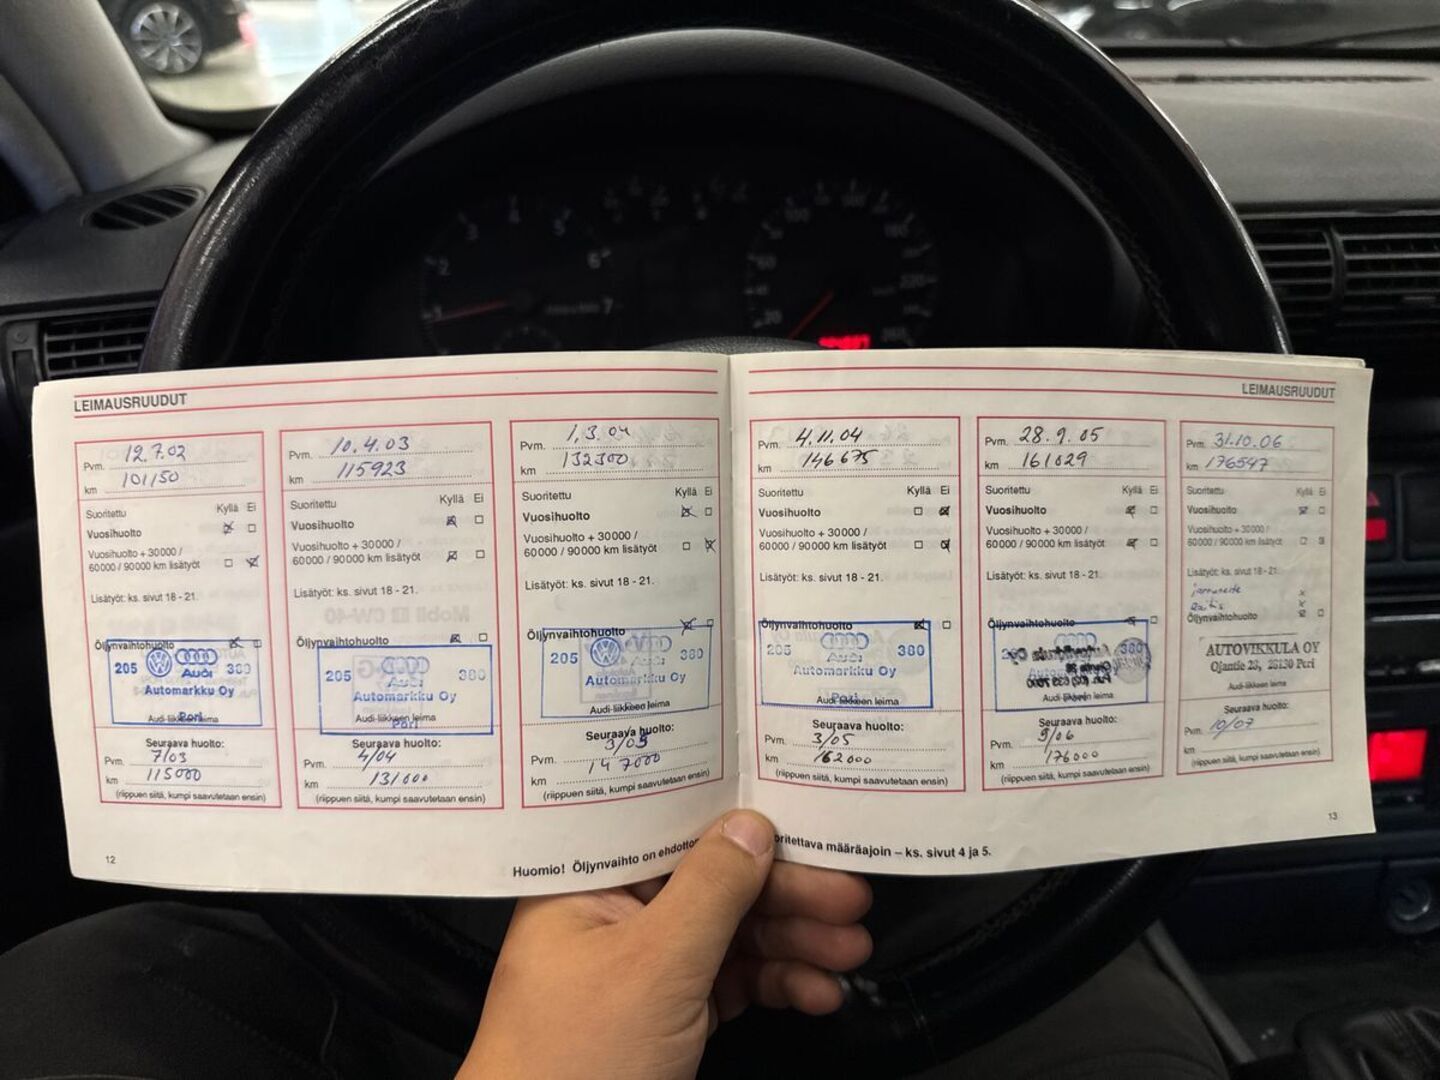 LEIMAUSRUUDUT
Pvm. 12.7.02
km 101150
Suoritettu Kyllä Ei
Vuosihuolto
Vuosihuolto + 30000 /
60000 / 90000 km lisätyöt
Lisätyöt: ks. sivut 18 - 21.
Öljynvaihtohuolto
205 380
Audi
Automarkku Oy
Pori
Audi-liikkeen leima
Seuraava huolto:
Pvm. 7/03
km 115000
(riippuen siitä, kumpi saavutetaan ensin)
Pvm. 10.4.03
km 115923
Suoritettu Kyllä Ei
Vuosihuolto
Vuosihuolto + 30000 /
60000 / 90000 km lisätyöt
Lisätyöt: ks. sivut 18 - 21.
Öljynvaihtohuolto
205 380
Audi
Automarkku Oy
Audi-liikkeen leima
Pori
Seuraava huolto:
Pvm. 4/04
km 131000
(riippuen siitä, kumpi saavutetaan ensin)
Pvm. 1.3.04
km 132300
Suoritettu Kyllä Ei
Vuosihuolto
Vuosihuolto + 30000 /
60000 / 90000 km lisätyöt
Lisätyöt: ks. sivut 18 - 21.
Öljynvaihtohuolto
205 380
Audi
Automarkku Oy
Audi-liikkeen leima
Seuraava huolto:
Pvm. 3/05
km 147000
(riippuen siitä, kumpi saavutetaan ensin)
12
Huomio! Öljynvaihto on
LEIMAUSRUUDUT
Pvm. 4.11.04
km 146675
Suoritettu Kyllä Ei
Vuosihuolto
Vuosihuolto + 30000 /
60000 / 90000 km lisätyöt
Lisätyöt: ks. sivut 18 - 21.
Öljynvaihtohuolto
205 380
Audi
Automarkku Oy
Pori
Audi-liikkeen leima
Seuraava huolto:
Pvm. 3/05
km 162000
(riippuen siitä, kumpi saavutetaan ensin)
Pvm. 28.9.05
km 161029
Suoritettu Kyllä Ei
Vuosihuolto
Vuosihuolto + 30000 /
60000 / 90000 km lisätyöt
Lisätyöt: ks. sivut 18 - 21.
Öljynvaihtohuolto
380
Audi-liikkeen leima
Seuraava huolto:
Pvm. 9/06
km 176000
(riippuen siitä, kumpi saavutetaan ensin)
Pvm. 31.10.06
km 176547
Suoritettu Kyllä Ei
Vuosihuolto
Vuosihuolto + 30000 /
60000 / 90000 km lisätyöt
Lisätyöt: ks. sivut 18 - 21.
Öljynvaihtohuolto
AUTOVIKKULA OY
Ojantie 23, 28130 Pori
Audi-liikkeen leima
Seuraava huolto:
Pvm. 10/07
km
(riippuen siitä, kumpi saavutetaan ensin)
13
määräajoin – ks. sivut 4 ja 5.